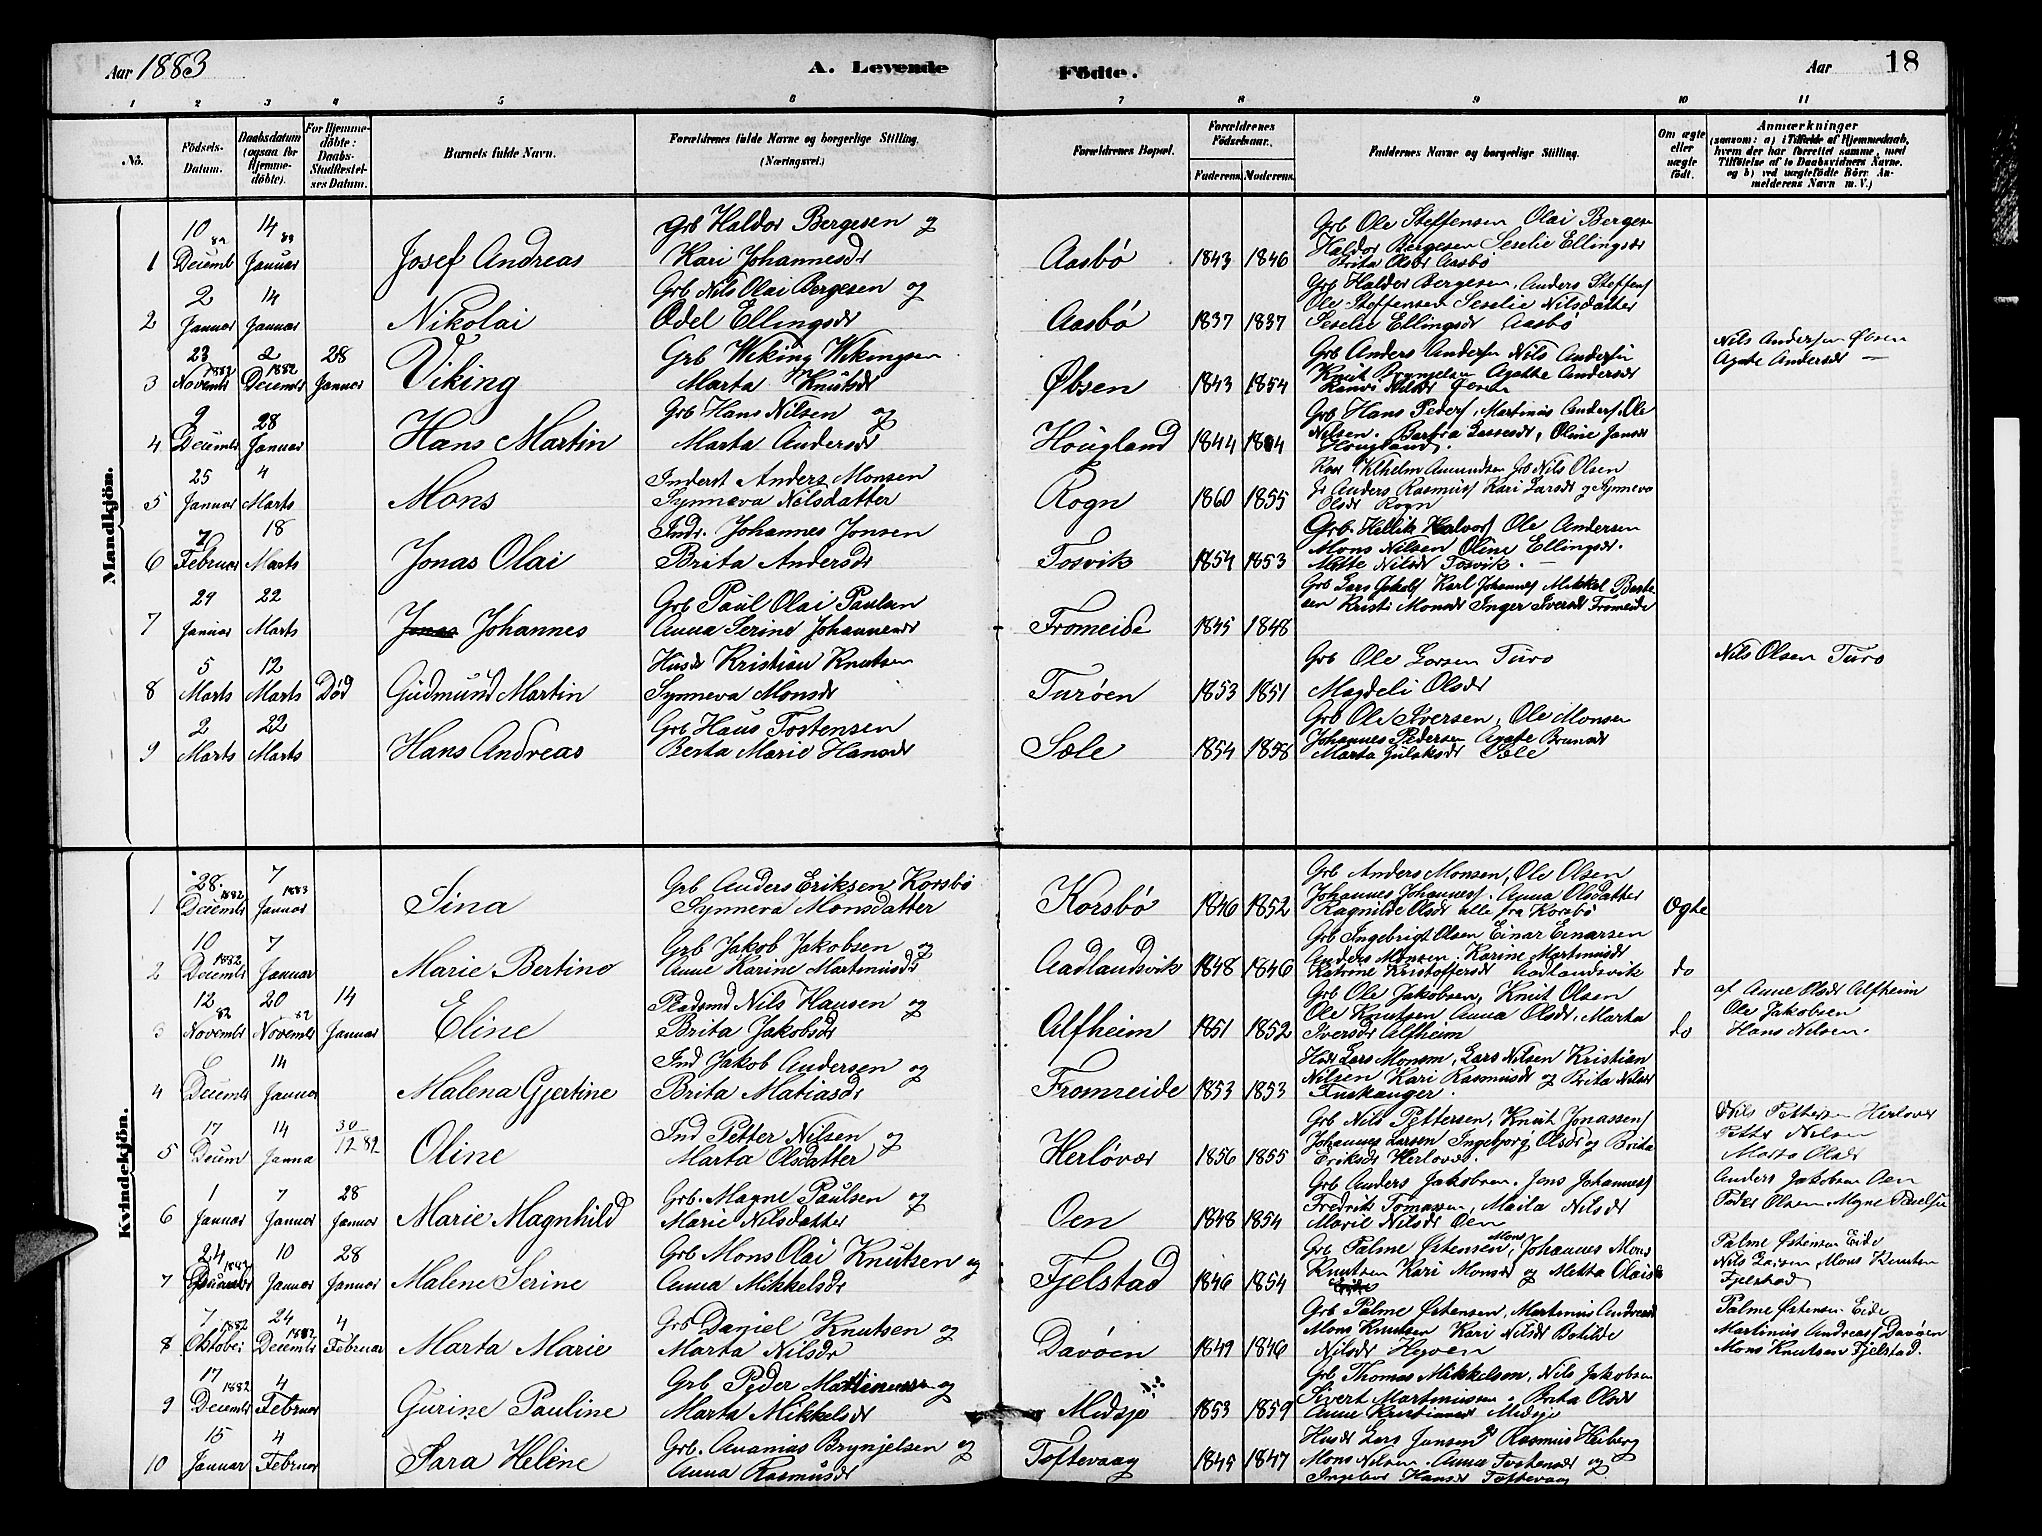 Aar 1883
A. Levende Födte.
Aar 18
1 2 3 4 5 6 7 8 9 10 11
No.
Födsels-Datum.
Daabsdatum (ogsaa for Hjemme-döbte).
For Hjemme-döbte: Daabs-Stadfæstel-ses Datum.
Barnets fulde Navn.
Forældrenes fulde Navne og borgerlige Stilling. (Næringsvei.)
Forældrenes Bopæl.
Forældrenes Födselsaar. Faderens. Moderens.
Faddernes Navne og borgerlige Stilling.
Om ægte eller uægte födt.
Anmærkninger (saasom: a) i Tilfælde af Hjemmedaab, hvem der har forrettet samme, med Tilföielse af to Daabsvidners Navne, og b) ved uægtefödte Börn Anmelderens Navn m. V.)
Mandkjön.
1 10 82 Decemb 14 83 Januar Josef Andreas Grb Haldor Bergesen og Kari Johannesdr Aasbø 1843 1846 Grb Ole Steffensen Olai Bergesen Haldor Bergesen Seselie Ellingsdr Brita Olsdr Aasbø
2 2 Januar 14 Januar Nikolai Grb Nils Olai Bergesen og Odel Ellingsdr Aasbø 1837 1837 Grb Haldor Bergesen, Anders Steffens Ole Steffensen Seselie Nilsdatter Seselie Ellingsdr Aasbø
3 23 1882 Novembr 2 1882 Decembr 28 Januar Viking Grb Wiking Wikingsen Marta Knutsdr Øbsen 1843 1854 Grb Anders Andersen Nils Andersen Knut Brynjelsen Agathe Andersdr Nilsdr Øvsen Nils Andersen Øvsen Agate Andersdr —
4 9 Decembr 28 Januar Hans Martin Grb Hans Nilsen og Marta Andersdr Hougland 1844 1844 Grb Hans Peders, Martinus Anders, Ole Nilsen. Barbra Lassesdr, Oline Jansdr Hougland.
5 25 Januar 4 Marts Mons Inderst Anders Monsen Synneva Nilsdatter Rogn 1860 1855 Vilhelm Amundsen Grb Nils Olsen Anders Rasmus Kari Larsdr og Synneva Olsdr Rogn
6 7 Februar 18 Marts Jonas Olai Indr. Johannes Jonsen Brita Andersdr Tosvik 1854 1853 Grb. Hellik Halvors Ole Andersen Mons Nilsen Oline Ellingsdr. Mette Nilsdr Tosvik. —
7 29 Januar 22 Marts Jonas Johannes Grb Paul Olai Paulsen Anna Serine Johannesdr Fromeide 1845 1848 Grb Lars Jakobs Karl Johannes Mikkel Bastesen Kristi Monsdr Inger Iversdr Fromeide
8 5 Marts 12 Marts Død Gudmund Martin Husdr Kristian Knutsen Synneva Monsdr Turøen 1853 1851 Grb Ole Larsen Turø Magdeli Olsdr Nils Olsen Turø
9 2 Marts 22 Marts Hans Andreas Grb Hans Tostensen Berta Marie Hansdr Sæle 1854 1858 Grb Ole Iversen, Ole Monsen Johannes Pedersen Agate Brunsdr Marta Gulaksdr Sæle
Kvindekjön.
1 28. 1882 Decembr 7 1883 Januar Sina Grb Anders Eriksen Korsbø Synneva Monsdatter Korsbø 1846 1852 Grb Anders Monsen, Ole Olsen Johannes Johannes. Anna Olsdatter Ragnilde Olsdr alle fra Korsbø Ægte
2 10 1882 Decembr 7 Januar Marie Bertine Grb Jakob Jakobsen og Anne Karine Martinusdr Aadlandsvik 1848 1846 Grb Ingebrigt Olsen Einar Einarsen Anders Monsen, Karine Martinusdr Katrine Kristoffersdr Aadlandsvik do
3 12 82 Novembr 20 82 Novembr 14 Januar Eline Pladsmd Nils Hansen og Brita Jakobsdr Alfheim 1851 1852 Grb Ole Jakobsen, Knut Olsen Ole Knutsen Anna Olsdr, Marta Iversdr Alfheim do af Anne Olsdr Alfheim Ole Jakobsen Hans Nilsen.
4 6 Decembr 14 Januar Malena Gjertine Ind Jakob Andersen og Brita Matiasdr Fromreide 1853 1853 Husdr Lars Monsen, Lars Nilsen Kristian Nilsen Kari Rasmusdr og Brita Nilsdr Tuskanger.
5 17 Decem 14 Janua 30/12 82 Oline Ind Petter Nilsen og Marta Olsdatter Herløvær 1856 1855 Grb Nils Pettersen, Knut Jonassen Johannes Larsen Ingeborg Olsdr og Brita Eriksdr Herlover. Nils Pettersen Herlover Petter Nilsen Marta Olsdr
6 1 Januar 7 Januar 28 Januar Marie Magnhild Grb. Magne Paulsen og Marie Nilsdatter Oen 1848 1854 Grb Anders Jakobsen. Jens Johannes Fredrik Tomassen, Marta Nilsdr Marie Nilsdr Oen Anders Jakobsen Oen Peder Olsen Magne Paulsen
7 24 1882 10 Januar 28 Januar Malene Serine Grb Mons Olai Knutsen og Anna Mikkelsdr Fjelstad 1846 1854 Grb Palme Østensen, Johannes Mons Mons Knutsen Kari Monsdr og Metta Olaisdr Palme Østensen Eide Nils Larsen, Mons Knutsen Fjelstad
8 7 1882 Oktober 24 1882 Decembr 4 Februar Marta Marie Grb Daniel Knutsen og Marta Nilsdr Davøen 1849 1846 Grb Palme Østensen, Martinus Andreas Mons Knutsen Kari Nilsdr Botilde Nilsdr Palme Østensen Eide Martinus Andreas Davøen Mons Knutsen Fjelstad.
9 17 1882 Decembr 4 Februar Gurine Pauline Grb Peder Martinussen og Marta Mikkelsdr Midsje 1853 1859 Grb Thomas Mikkelsen, Nils Jakobsen Sivert Martinussen, Brita Olsdr Anna Kristiansdr Midsje
10 15 Januar 4 Februar Sara Helene Grb. Ananias Brynjelsen og Anna Rasmusdr Toftevaag 1845 1847 Husdr Lars Jansen Rasmus Heiberg Mons Nilsen. Anna Tostensdr og Ingebor Hansdr Toftevaag